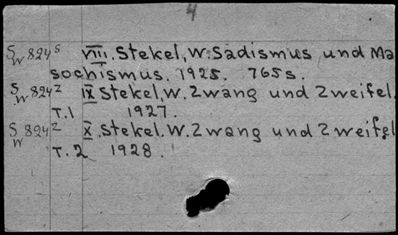 4
S/W 824 s VIII. Stekel, W. Sadismus und Ma
sochismus. 1925. 765 s.
S/W 824 z IX Stekel, W. Zwang und Zweifel.
T. 1 1927.
S/W 824 z X. Stekel. W. Zwang und Zweifel
T. 2 1928.